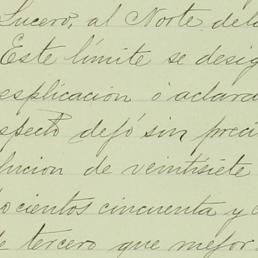 Lucero, al Norte del
Este límite se desig
esplicación ó aclara
specto dejó sin preci
lucion de veintisiete
ocientos cincuenta y
tercero que mejor